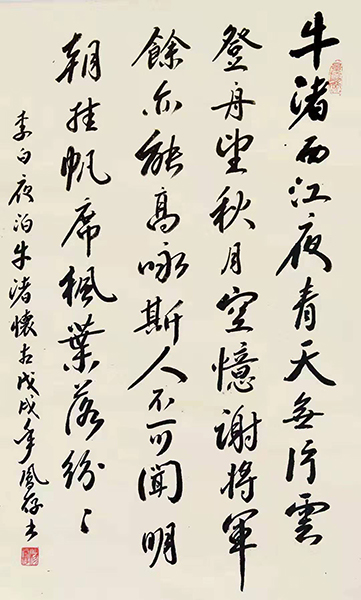 牛渚西江夜青天無片雲
登舟望秋月空憶謝將軍
餘亦能高詠斯人不可聞明
朝挂帆席楓葉落紛〻
李白夜泊牛渚懷古戊戌年存书